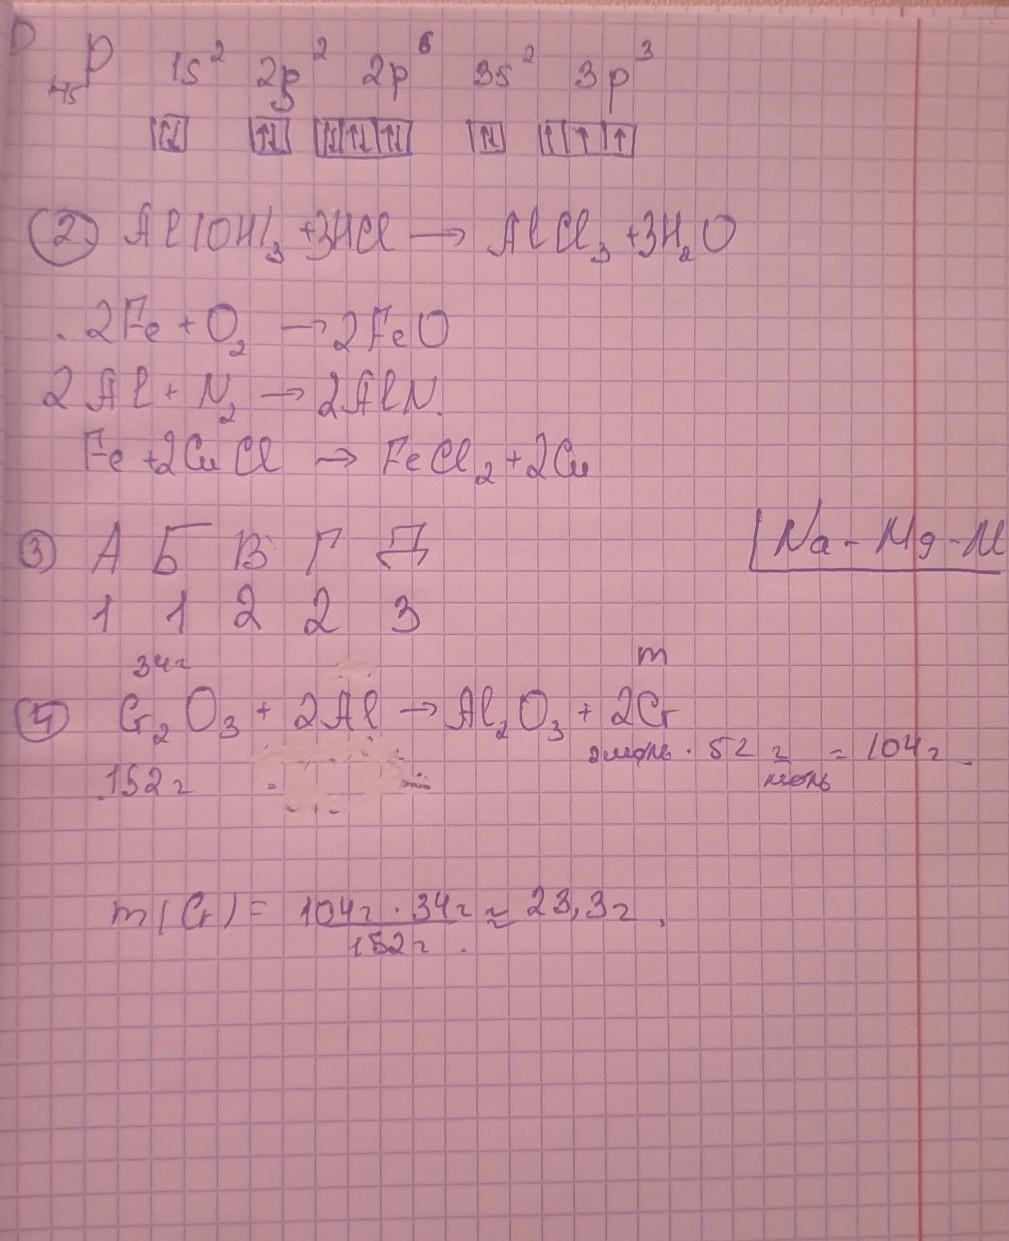 1) ₊₁₅P 1s² 2s² 2p⁶ 3s² 3p³
↑↓ ↑↓ ↑↓ ↑↓ ↑↓ ↑↓ ↑ ↑ ↑
② Al(OH)₃ + 3HCl → AlCl₃ + 3H₂O
2Fe + O₂ → 2FeO
2Al + N₂ → 2AlN.
Fe + 2CuCl → FeCl₂ + 2Cu
Na - Mg - Al
③ А Б В Г Д
1 1 2 2 3
34г m
④ Cr₂O₃ + 2Al → Al₂O₃ + 2Cr
152г = 2моль · 52 г/моль = 104г
m(Cr) = 104г · 34г / 152г ≈ 23,3г.